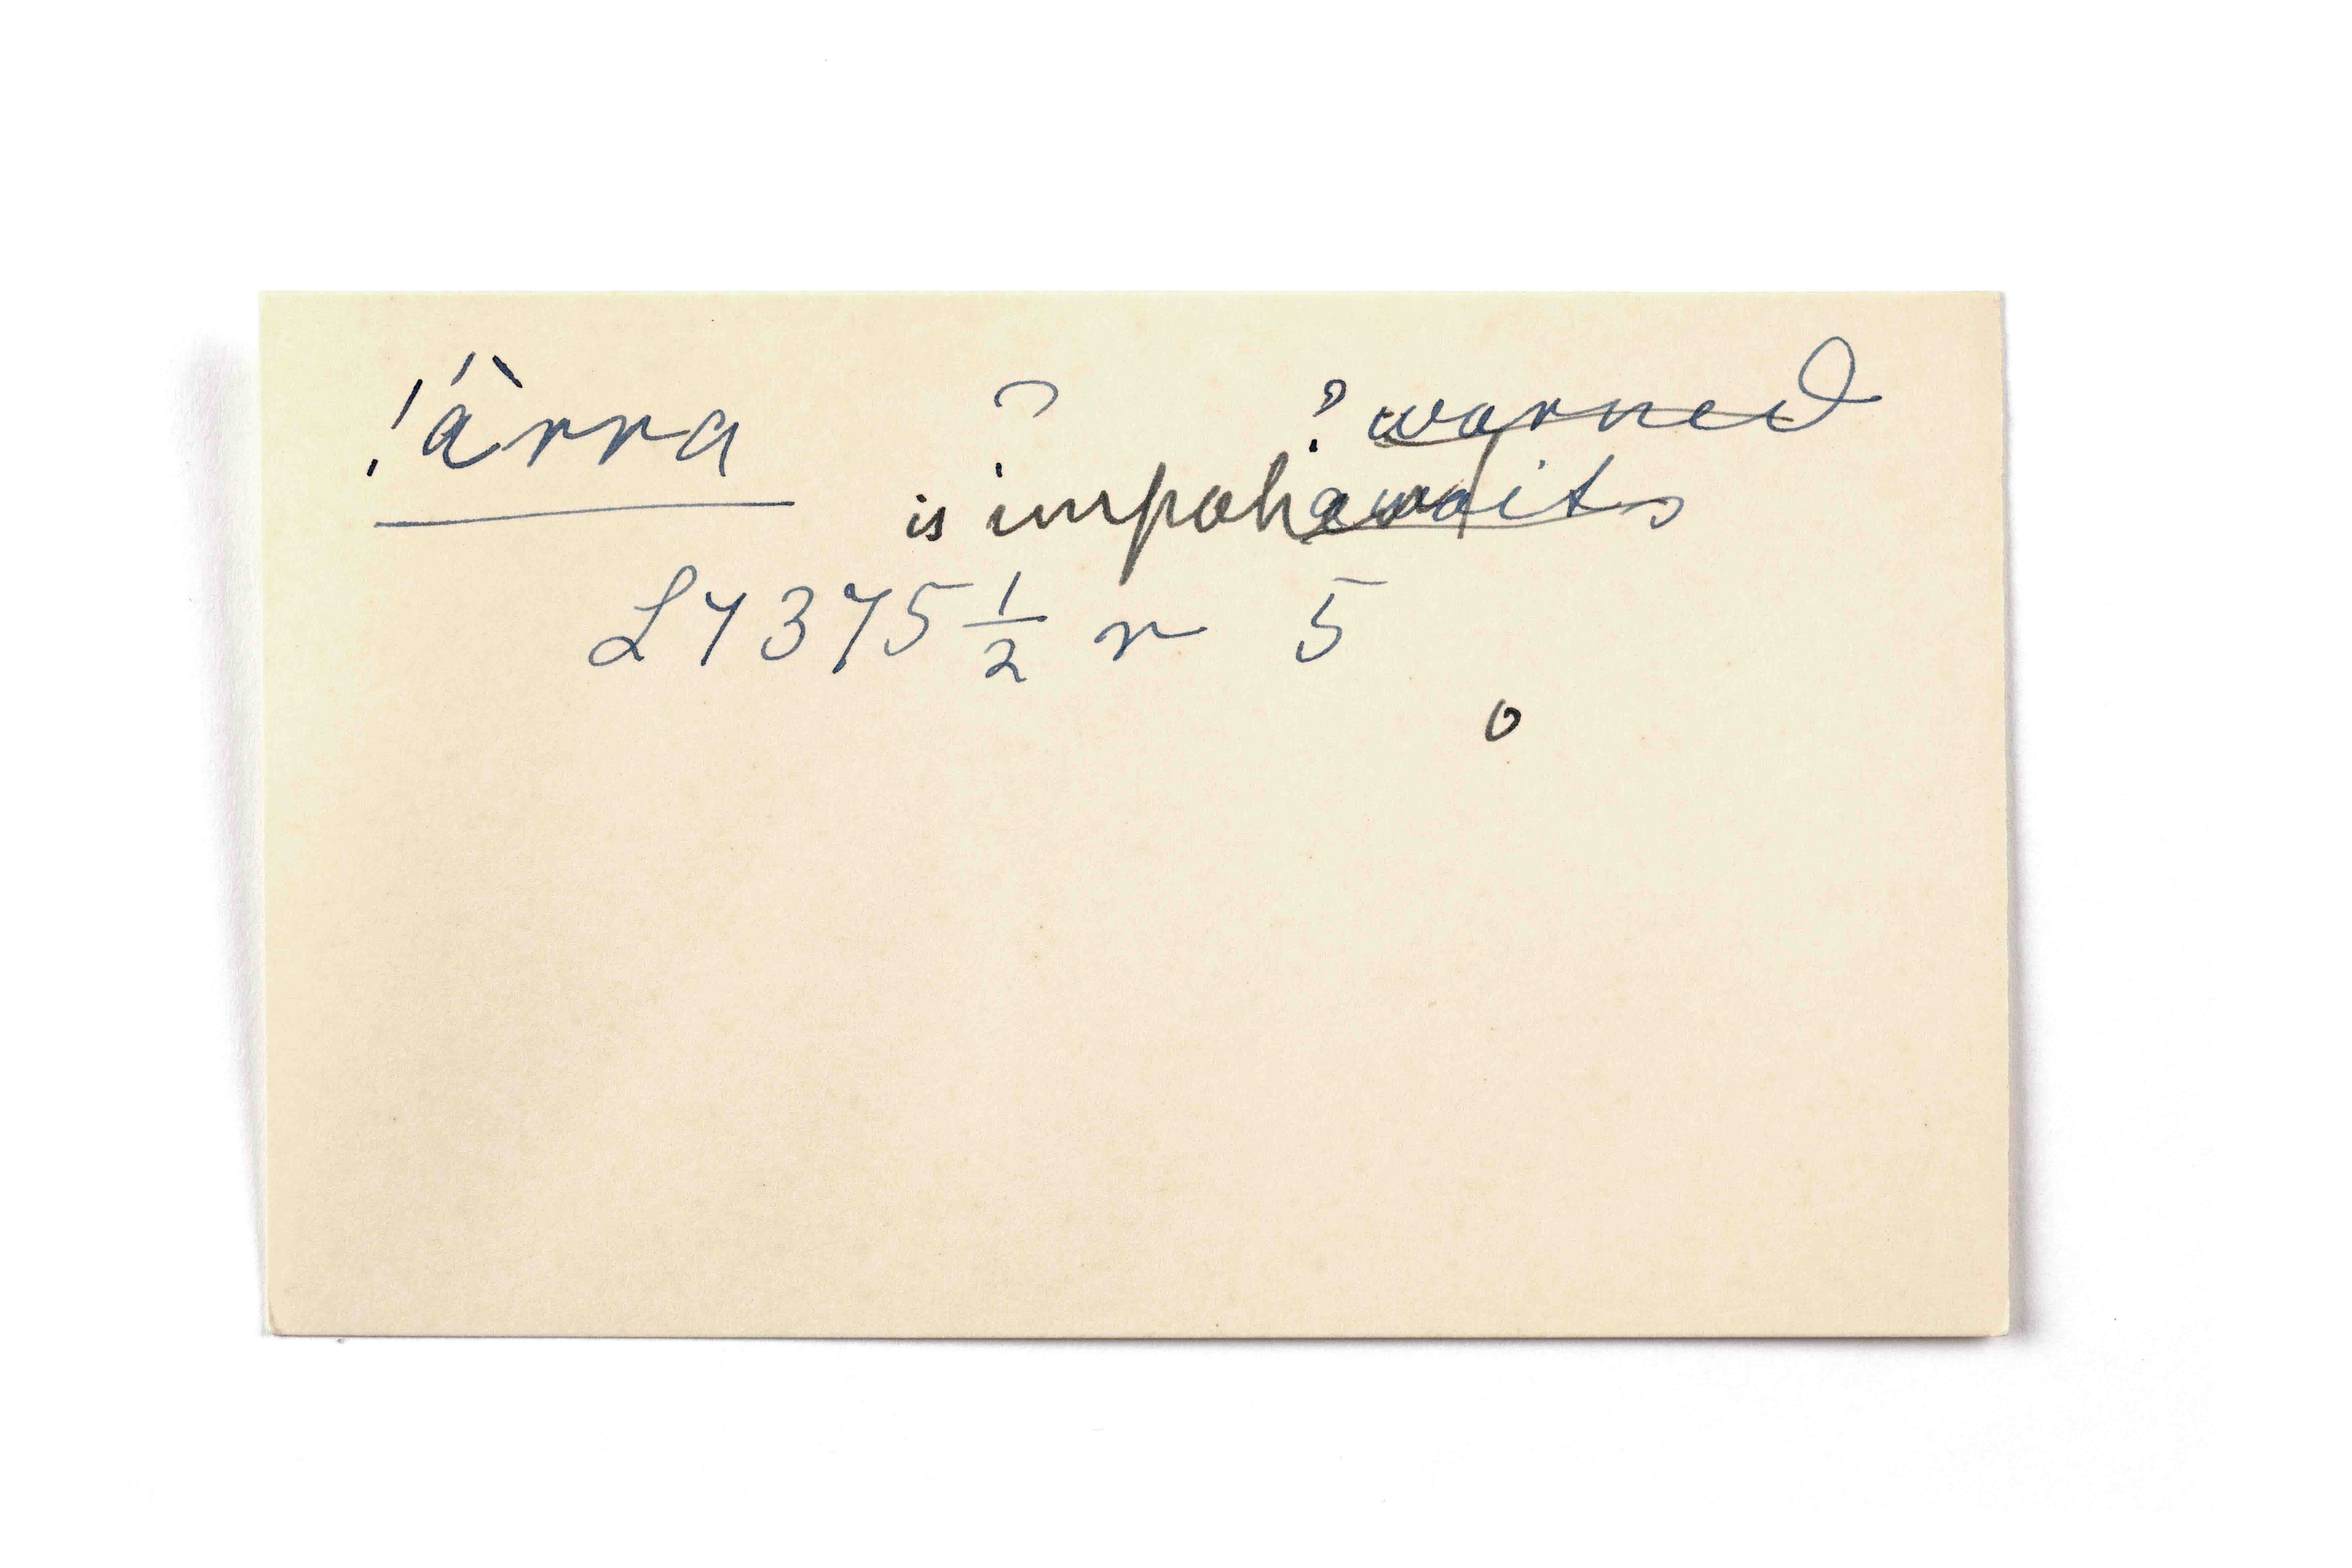 !á̀rra ? ? warned
is impatient awaits
L7375½ r 5
o